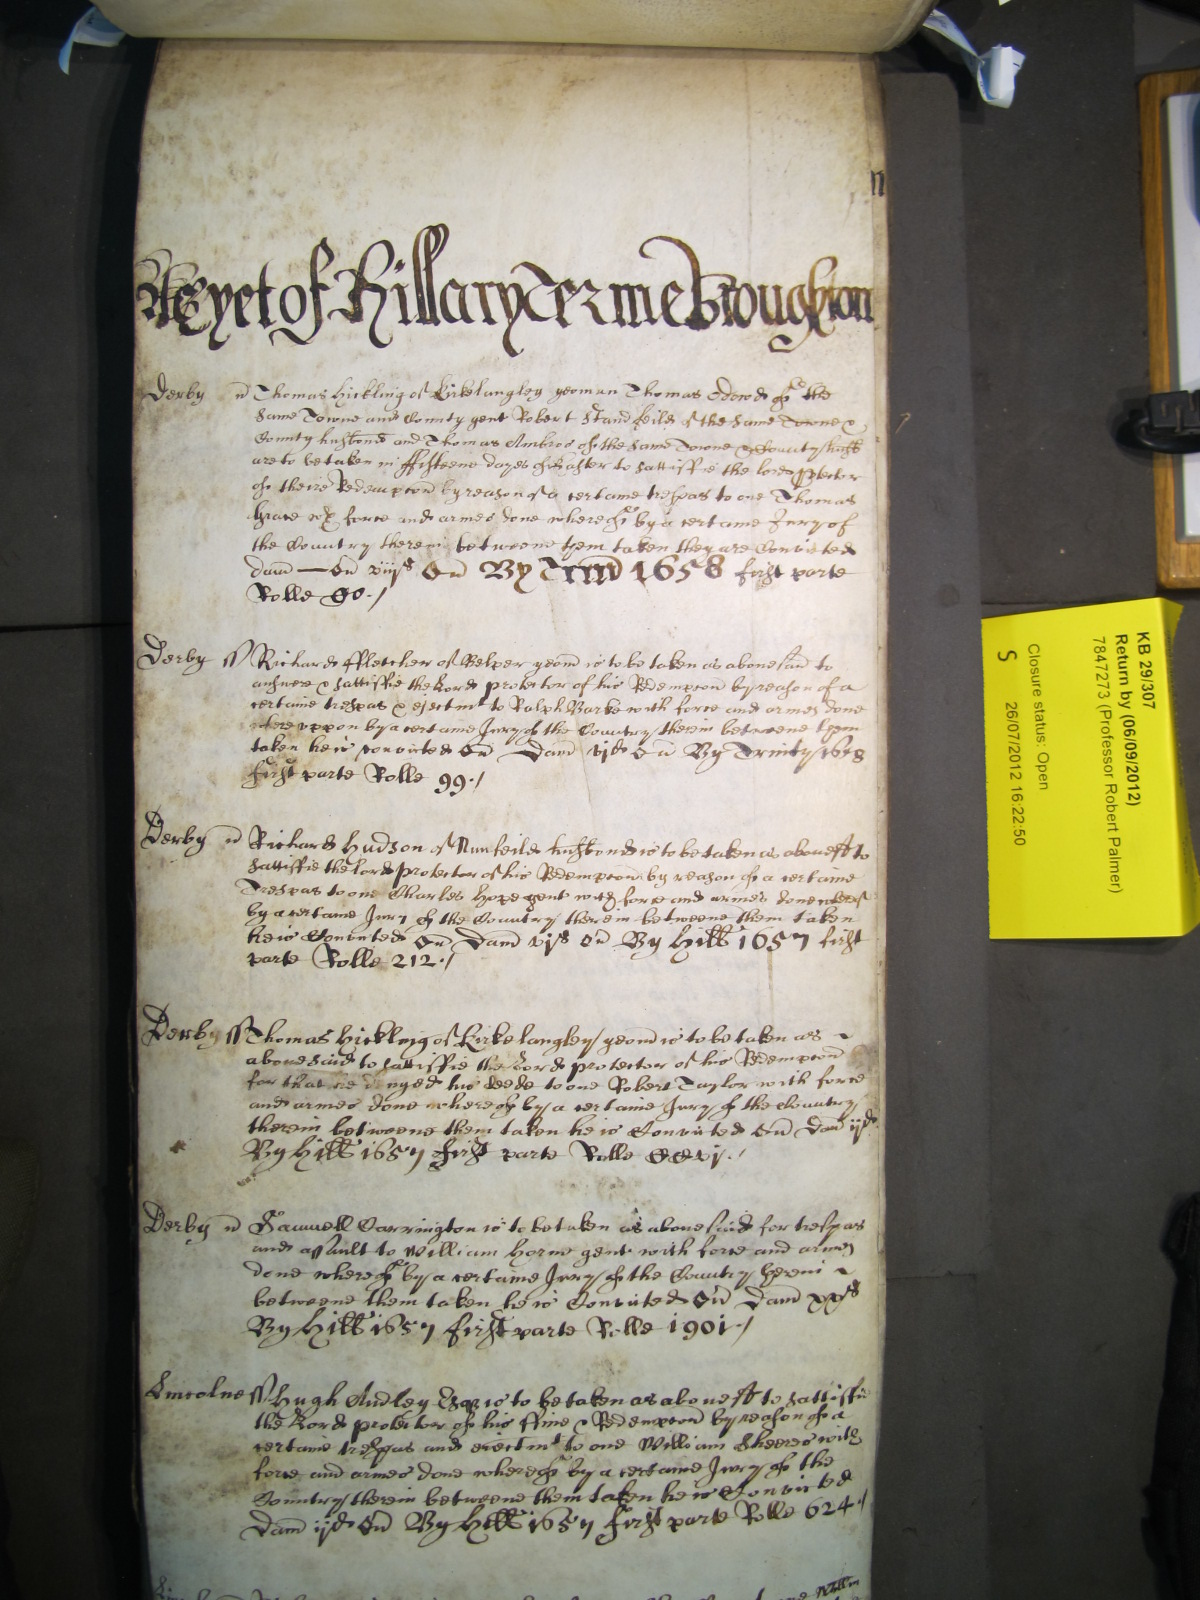 As yet of Hillary Terme Broughton
Derby Thomas Hickling of Kirkelangley yeoman Thomas of the
same Towne and County gent Robert Standfeild of the same Towne &
County husband and Thomas Ambros of the same Towne & County husb
are to be taken in ffifteene dayes of Easter to sattisfie the lord ptector
of theire Redempcon by reason of a certaine trespas to one Thomas
force and armes done whereof by a certaine Jury of
the Country therein betweene them taken they are Convicted
dam By Trin 1658 first parte
Rolle 90
Derby ss Richard ffletcher of Belper yeom is to be taken as abovesaid to
answere & sattisfie the Lord protector of his Redempcon by reason of a
certaine trespas & ejectmt to Ralph Barke with force and armes done
whereuppon by a certaine Jury of the Country therein betweene them
taken he is convicted Dam vjd By Trinity 1658
first parte Rolle 99
Derby Richard Hudson of husband is to be taken as abovesd to
sattisfie the lord protector of his Redempcon by reason of a certaine
Trespas to one Charles Hope gent with force and armes done whereof
by a certaine Jury of the Country therein betweene them taken
he is Convicted Dam By Hill 1657 first
parte Rolle 212
Derby ss Thomas Hickling of Kirkelangley yeom is to be taken as
abovesaid to sattisfie the Lord protector of his Redempcon
for that he denyed his deede to one Robert Taylor with force
and armes done whereof by a certaine Jury of the Country
therein betweene them taken he is Convicted Dam ijd
By Hill 1657 first parte Rolle
Derby Samuell Carrington is to be taken as abovesaid for trespas
and assault to William Horne gent with force and armes
done whereof by a certaine Jury of the Country therein
betweene them taken he is Convicted Dam xxs
By Hill 1657 first parte Rolle 1901
Lincolne ss Hugh Audley Esqr is to be taken as abovesd to sattisfie
the Lord protector of his ffine & Redempcon by reason of a
certaine trespas and eiectmt to one William Sheeres with
force and armes done whereof by a certaine Jury of the
Countrey therein betweene them taken he is Convicted
Dam ijd By Hill 1657 first parte Rolle 624
KB 29/307
Return by (06/09/2012)
7847273 (Professor Robert Palmer)
Closure status: Open
S 26/07/2012 16:22:50